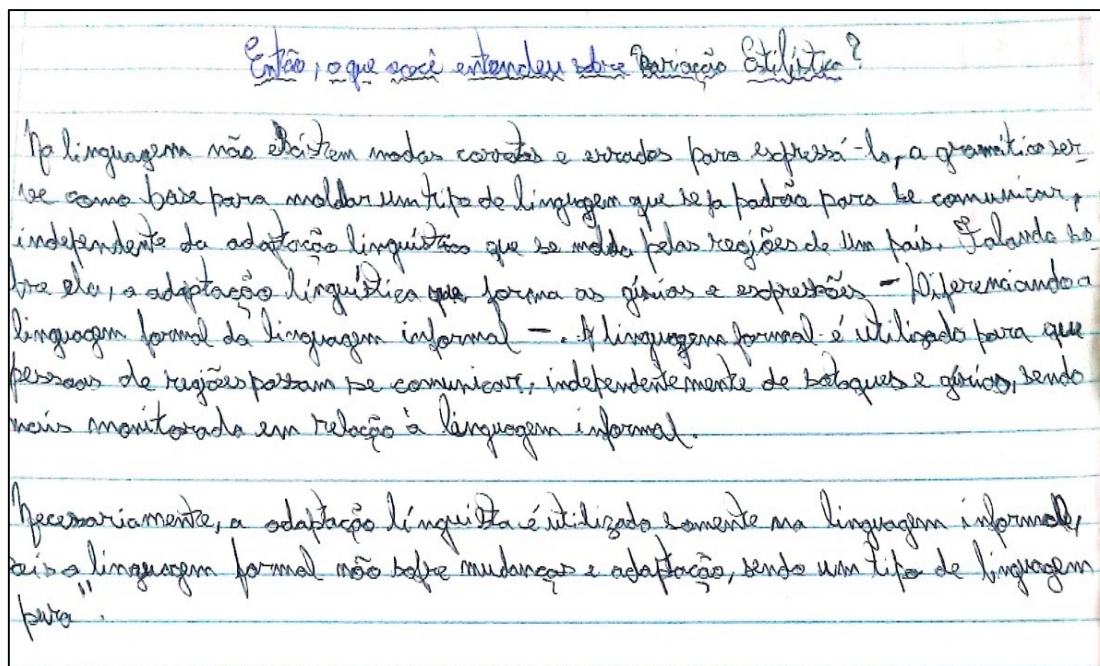 Então, o que você entendeu sobre Variação Estilística?
Na linguagem não existem modos corretos e errados para expressá-la, a gramática ser-
ve como base para moldar um tipo de linguagem que seja padrão para se comunicar,
independente da adaptação linguística que se molda pelas regiões de um país. Falando so-
bre ela, a adaptação linguística que forma as gírias e expressões – Diferenciando a
linguagem formal da linguagem informal –. A linguagem formal é utilizada para que
pessoas de regiões possam se comunicar, independentemente de sotaques e gírias, sendo
mais monitorada em relação à linguagem informal.
Necessariamente, a adaptação línguista é utilizada somente na linguagem informal,
pois a linguagem formal não sofre mudanças e adaptação, sendo um tipo de linguagem
pura".